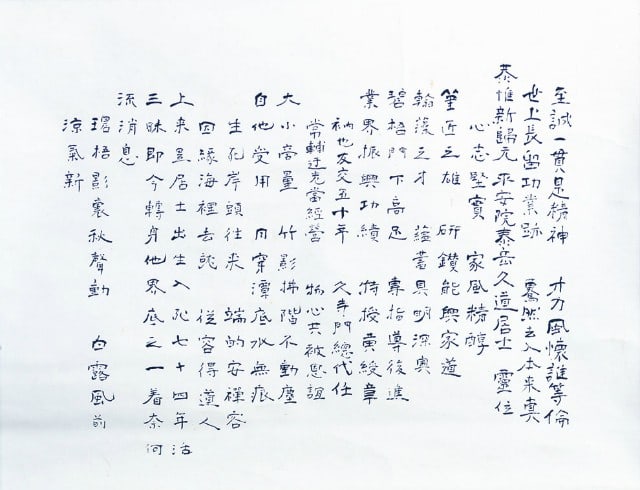 至誠一貫是精神　才力風懷誰等倫
世上長留功業跡　驀然去入本来真
恭惟新歸元　安院泰岳久道居士　靈位
心志堅實　家風精醇
筆匠之雄　研鑽能興家道
翰後之才　蘊蓄具明深奥
碧梧門下高足　專指導後進
業界振興功績　特授黄綬章
衲也友交五十年　久寺門總代任
常輔充當經營　物心共被恩誼
大小量　竹影拂階不動塵
自他受用　月穿潭底水無痕
生死岸頭往来　端的安禅客
因縁海裡去就　從容得道人
上来是居士出生入死七十四年活
三昧即今轉身他界底之一着奈何
流消息
梧影裏秋聲動　白露風前
涼氣新